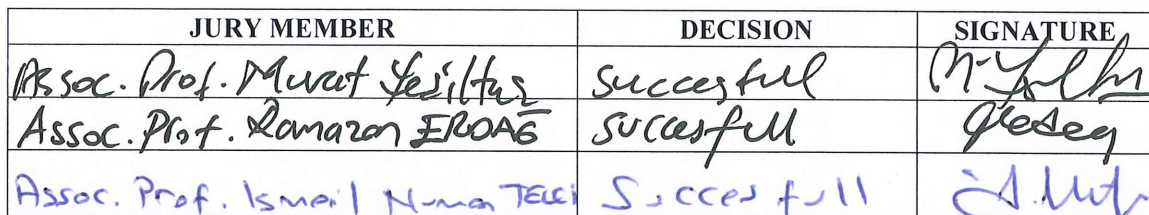 JURY MEMBER DECISION SIGNATURE
Assoc. Prof. Murat Yeşiltaş succesfull
Assoc. Prof. Ramazan ERDAĞ succesfull
Assoc. Prof. Ismail Numan TELCI Succesfull